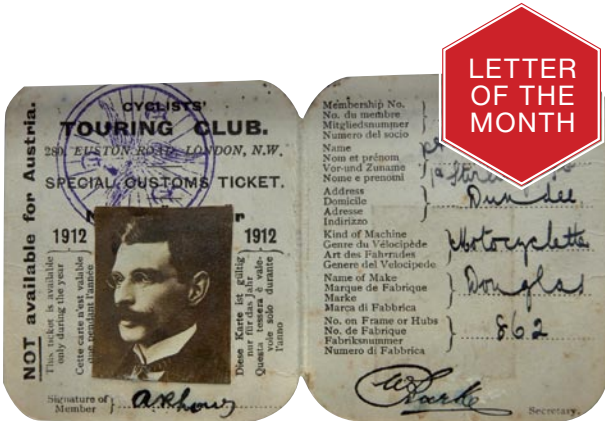 LETTER
OF THE
MONTH
NOT available for Austria.
CYCLISTS'
TOURING CLUB.
280, EUSTON ROAD, LONDON, N.W.
SPECIAL CUSTOMS TICKET.
1912
1912
This ticket is available
only during the year
Cette carte n'est valable
que pendant l'année
Diese Karte ist gültig
nur für das Jahr
Questa tessera è vale-
vole solo durante
l'anno
Signature of
Member
Membership No.
No. du membre
Mitgliedsnummer
Numero del socio
Name
Nom et prénom
Vor-und Zuname
Nome e prenomi
Address
Domicile
Adresse
Indirizzo
Dundee
Kind of Machine
Genre du Vélocipède
Art des Fahrrades
Genere del Velocipede
Motocyclette
Name of Make
Marque de Fabrique
Marke
Marca di Fabbrica
Douglas
No. on Frame or Hubs
No. de Fabrique
Fabriksnummer
Numero di Fabbrica
862
Secretary.